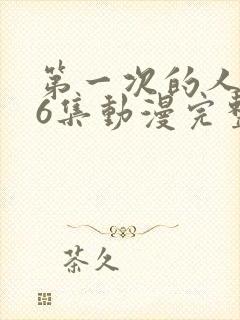 第一次的人
6集動漫完整
茶久